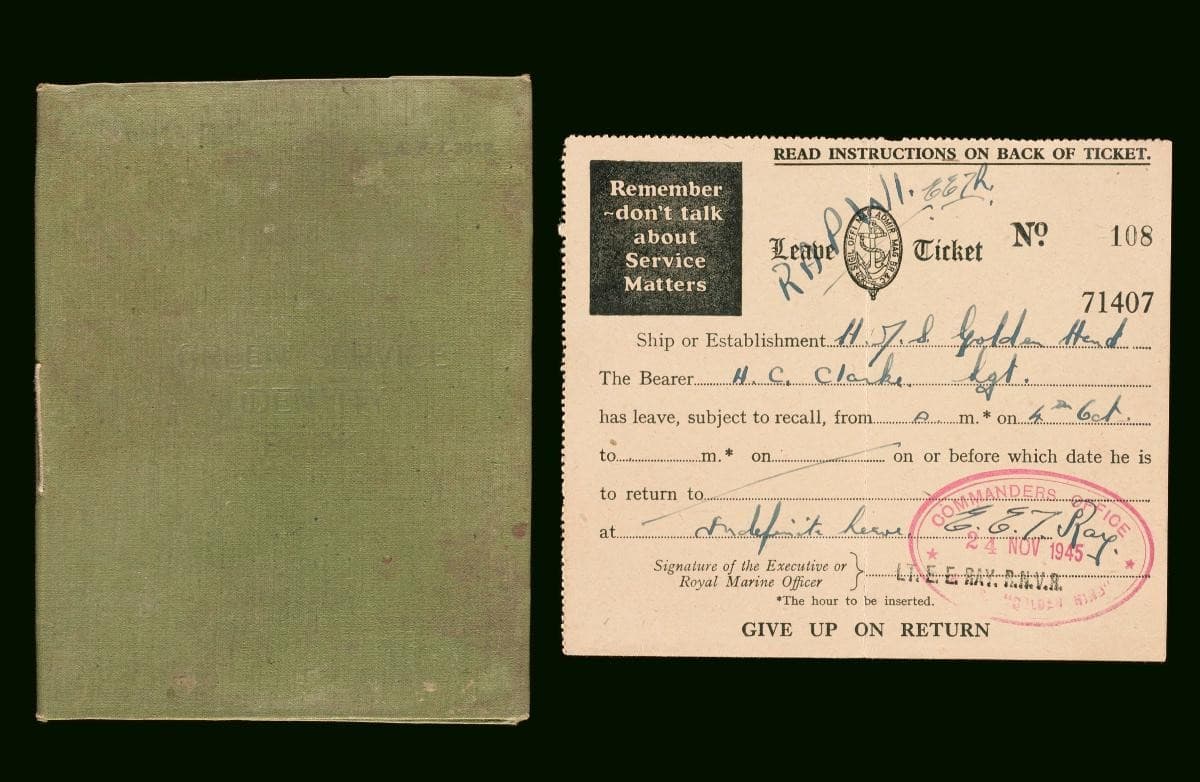 READ INSTRUCTIONS ON BACK OF TICKET.
Remember
~don't talk
about
Service
Matters
RAPWI. EETR.
Leave Ticket Nº 108
71407
Ship or Establishment H.M.S Golden Hind
The Bearer H. C. Clarke Sgt.
has leave, subject to recall, from m.* on 4th Oct.
to m.* on on or before which date he is
to return to
at Indefinite leave. E.E.T. Ray.
COMMANDERS OFFICE
24 NOV 1945
"GOLDEN HIND"
Signature of the Executive or
Royal Marine Officer
LT. E. E. RAY. R.N.V.R.
*The hour to be inserted.
GIVE UP ON RETURN